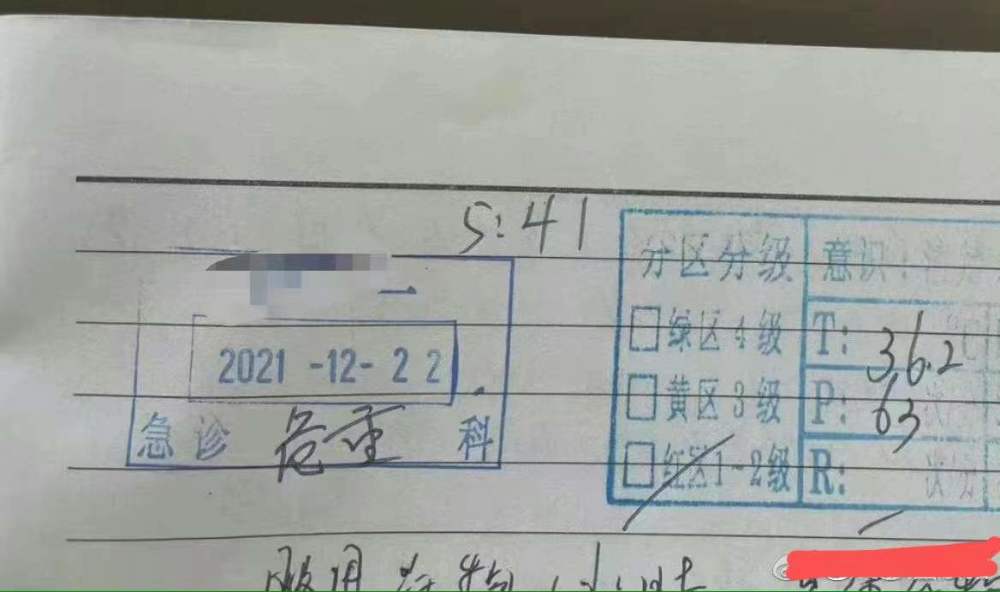 5:41
2021-12-22
急诊 危重 科
分区分级
绿区4级
黄区3级
红区1-2级
意识:
T: 36.2 ℃
P: 63 次
R: 次/分
服用